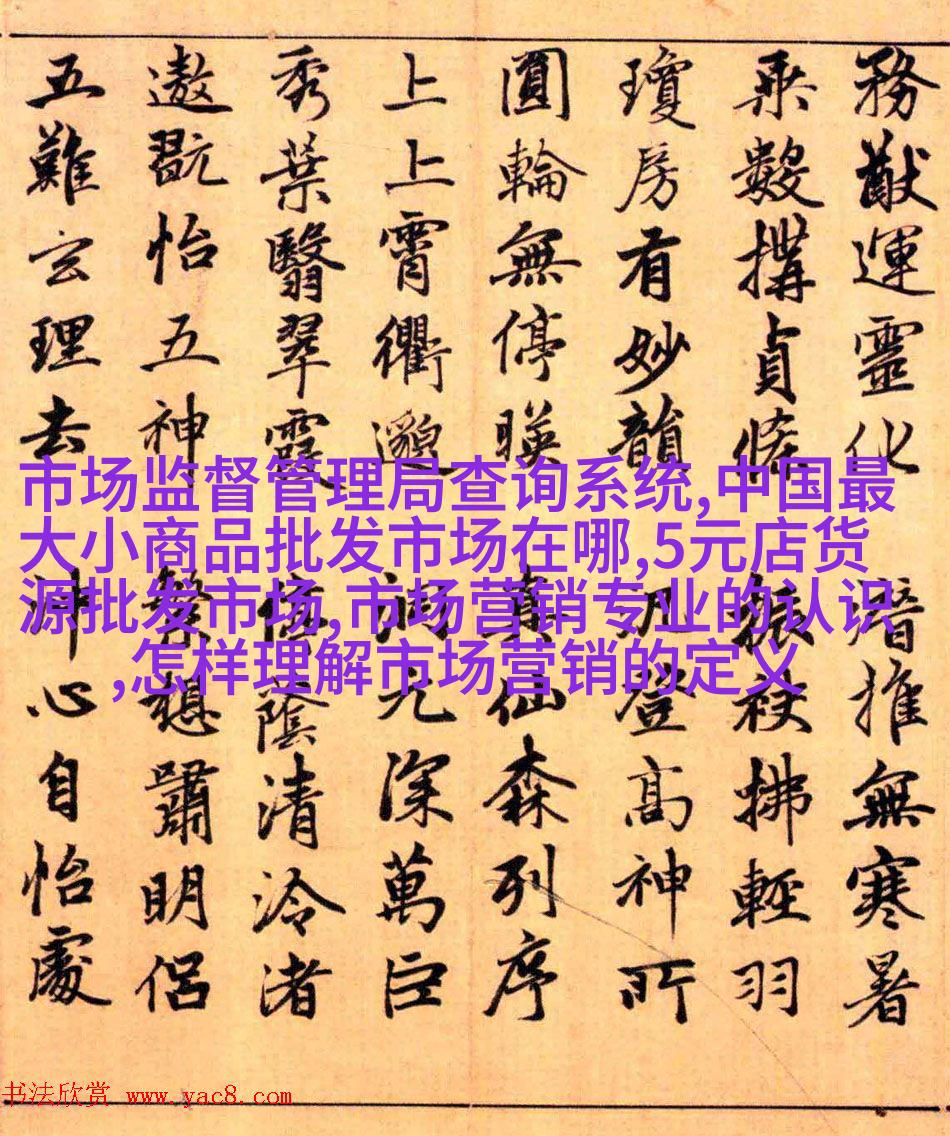 務猷運靈化暗推無寒暑
乘數搆貞條振袂拂輕羽
瓊房有妙韻汎登高神所
圓輪無停暎真仙森列序
上上霄衢邈洞元深萬巨
秀葉翳翠霞停蔭清泠渚
遨翫怡五神繁想嘯明侶
五難玄理去沖心自怡處
市场监督管理局查询系统,中国最
大小商品批发市场在哪,5元店货
源批发市场,市场营销专业的认识
,怎样理解市场营销的定义
书法欣赏 www.yac8.com